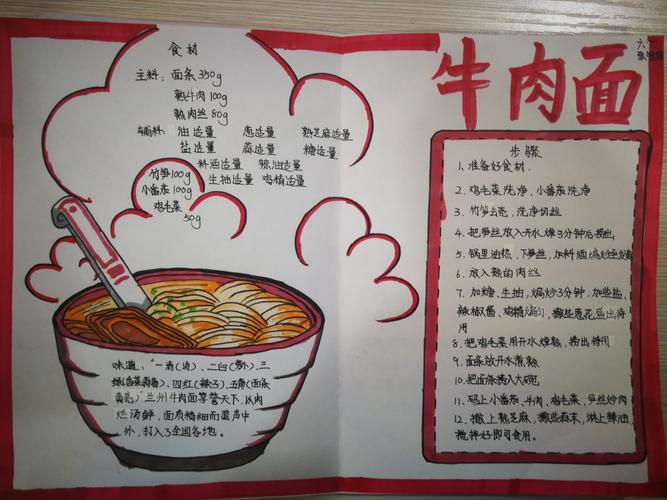 牛肉面
食材
主料：面条350g
熟牛肉100g
熟肉丝80g
辅料：油适量 葱适量 熟芝麻适量
盐适量 蒜适量 糖适量
料酒适量 辣油适量
竹笋100g 生抽适量 鸡精适量
小番茄100g
鸡毛菜
50g
味道："一清(汤)、二白(萝卜)、三
四红(辣子)、五黄(面条
兰州牛肉面享誉天下，以肉
烂汤鲜、面质精细而蜚声中
外，打入了全国各地。
步骤
1、准备好食材.
2、鸡毛菜洗净，小番茄洗净
3、竹笋去壳、洗净切丝
4、把笋丝放入开水焯3分钟后捞出.
5、锅里油热、下笋丝，加料酒煸炒至发黄
6、放入熟的肉丝
7、加糖、生抽，煸炒3分钟，加些盐、
辣椒酱、鸡精煸匀，撒些葱花盛出待
用
8、把鸡毛菜用开水焯熟，捞出待用
9、面条放开水煮熟
10、把面条捞入大碗
11、码上小番茄、牛肉、鸡毛菜、笋丝炒肉
12、撒上熟芝麻，撒些蒜末，淋上辣油，
搅拌好即可食用。